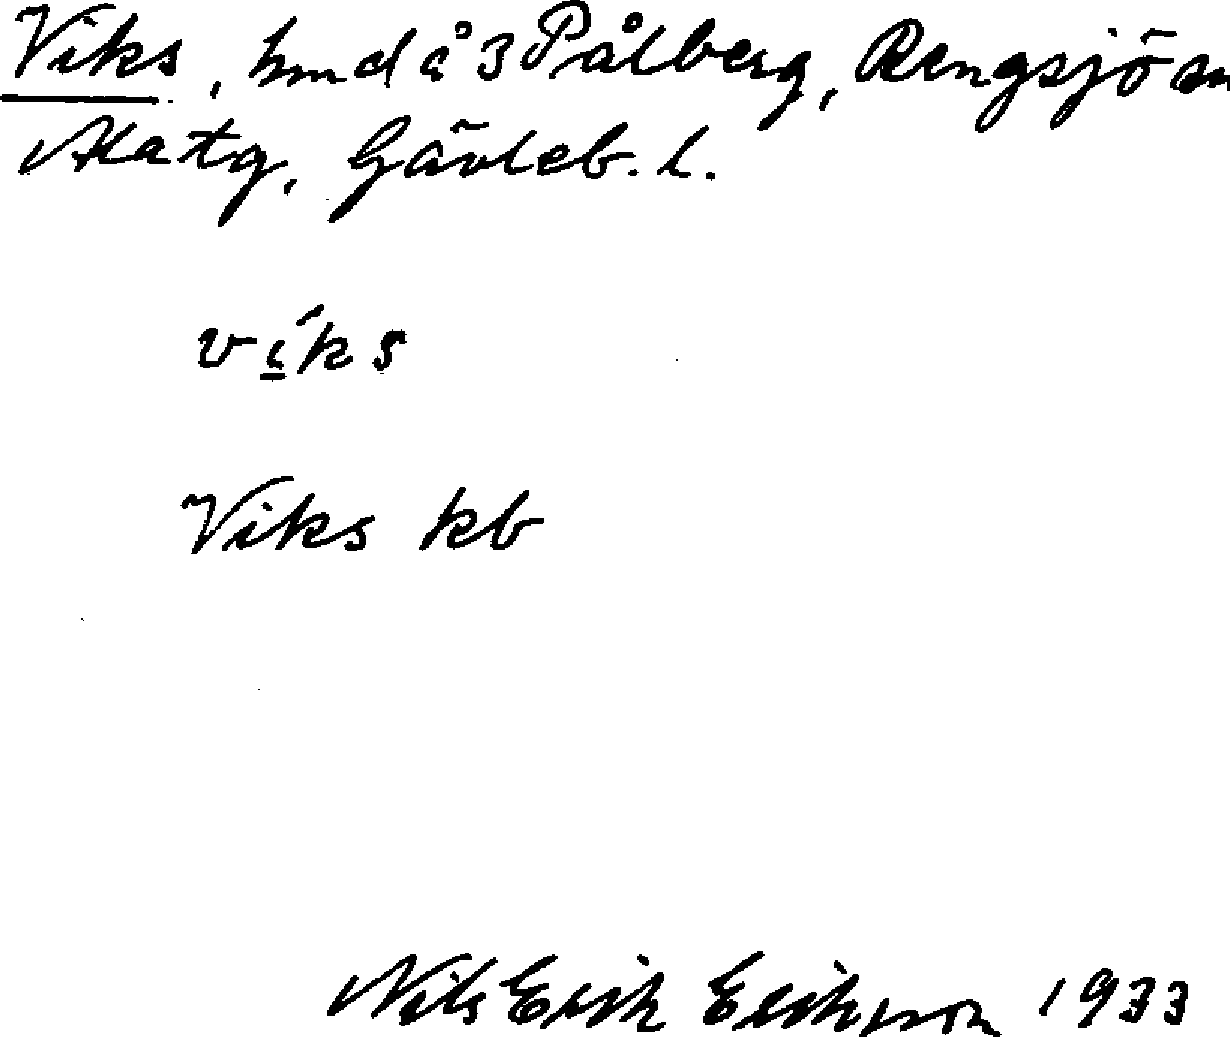 Viks, hmd å 3 Pålberg, Rengsjö sn
Ala tg, Gävleb. l.
víks
Viks kb
Nils Erik Eriksson 1933